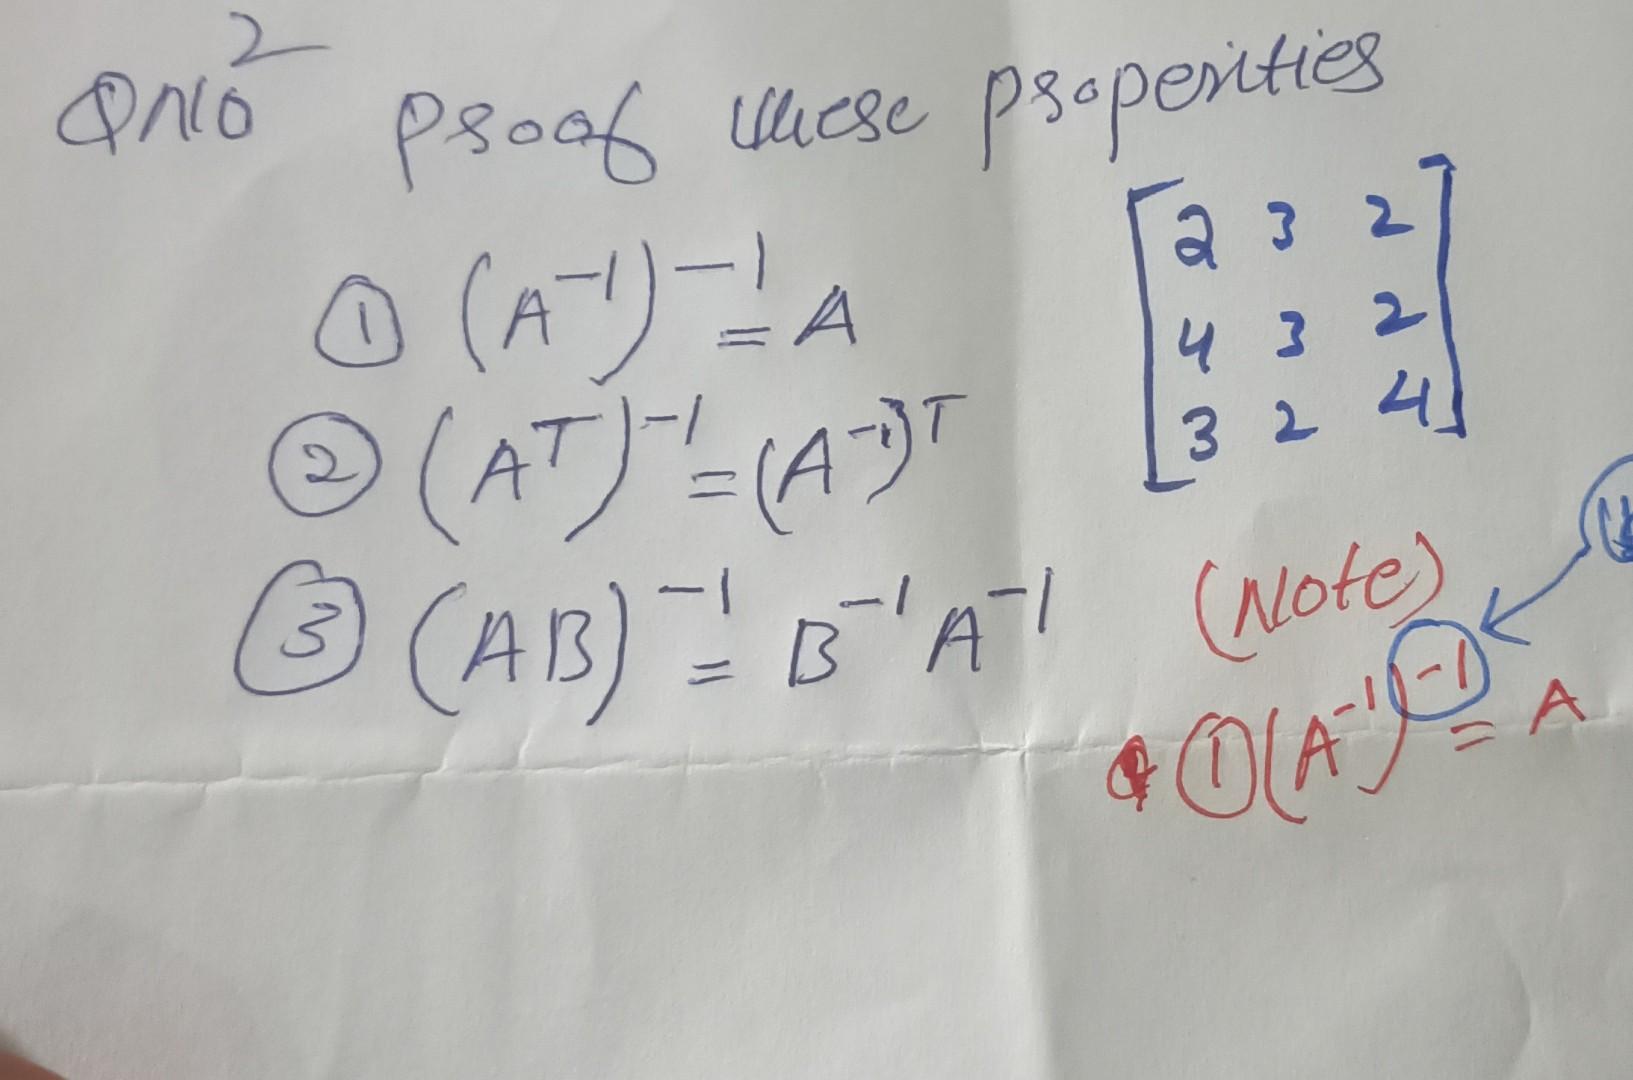 QNo 2 Proof these properities
① (A⁻¹)⁻¹ = A
② (Aᵀ)⁻¹ = (A⁻¹)ᵀ
③ (AB)⁻¹ = B⁻¹ A⁻¹
2 3 2
4 3 2
3 2 4
(Note)
① (A⁻¹)⁻¹ = A